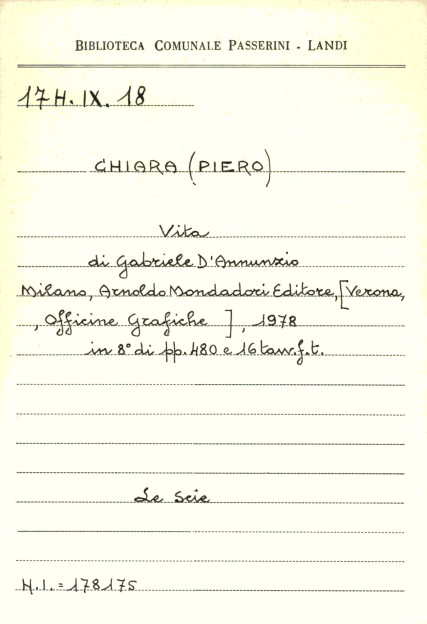 BIBLIOTECA COMUNALE PASSERINI - LANDI
17H. IX. 18
CHIARA (PIERO)
Vita
di Gabriele D'Annunzio
Milano, Arnoldo Mondadori Editore, [Verona,
, Officine Grafiche ], 1978
in 8° di pp. 480 e 16 tavv. f.t.
Le Scie
N.I. = 178175